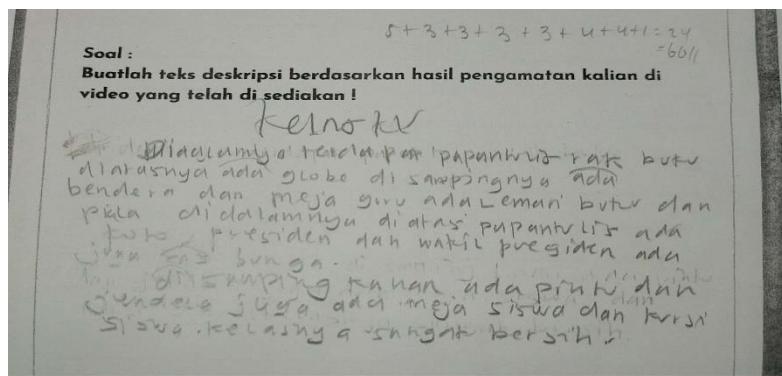 5+3+3+3+3+4+4+1=24
=60//
Soal :
Buatlah teks deskripsi berdasarkan hasil pengamatan kalian di
video yang telah di sediakan !
Kelnokv
Didalamnya terdapat papantulis rak buku
diatasnya ada globe di sampingnya ada
bendera dan meja guru ada Lemari buku dan
piala didalamnya diatas papantulis ada
foto presiden dan wakil presiden ada
juga bunga.
disamping kanan ada pintu dan
jendela juga ada meja siswa dan kursi
siswa. kelasnya sangat bersih.